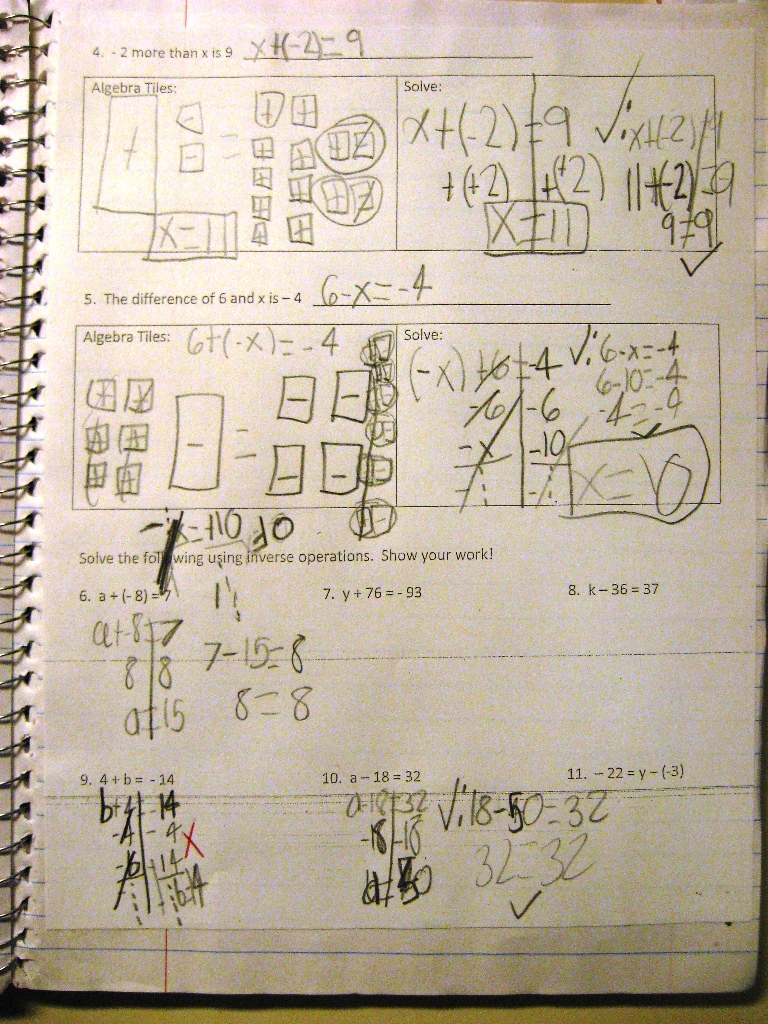 4. - 2 more than x is 9 x+(-2)=9
Algebra Tiles:
x=11
Solve:
x+(-2)=9
+(+2) +(+2)
x=11
√: x+(-2)=9
11+(-2)=9
9=9
5. The difference of 6 and x is – 4 6-x=-4
Algebra Tiles: 6+(-x)=-4
Solve:
(-x)+6=-4
-6 -6
-x -10
x=10
√: 6-x=-4
6-10=-4
-4=-4
Solve the following using inverse operations. Show your work!
6. a + (- 8) = 7
a+-8=7
8 8
a=15
7-15=8
8=8
7. y + 76 = - 93
8. k – 36 = 37
9. 4 + b = - 14
b+4=-14
-4 -4
10. a – 18 = 32
a-18=32
-18 -18
√: 18-50=32
32=32
11. – 22 = y – (-3)